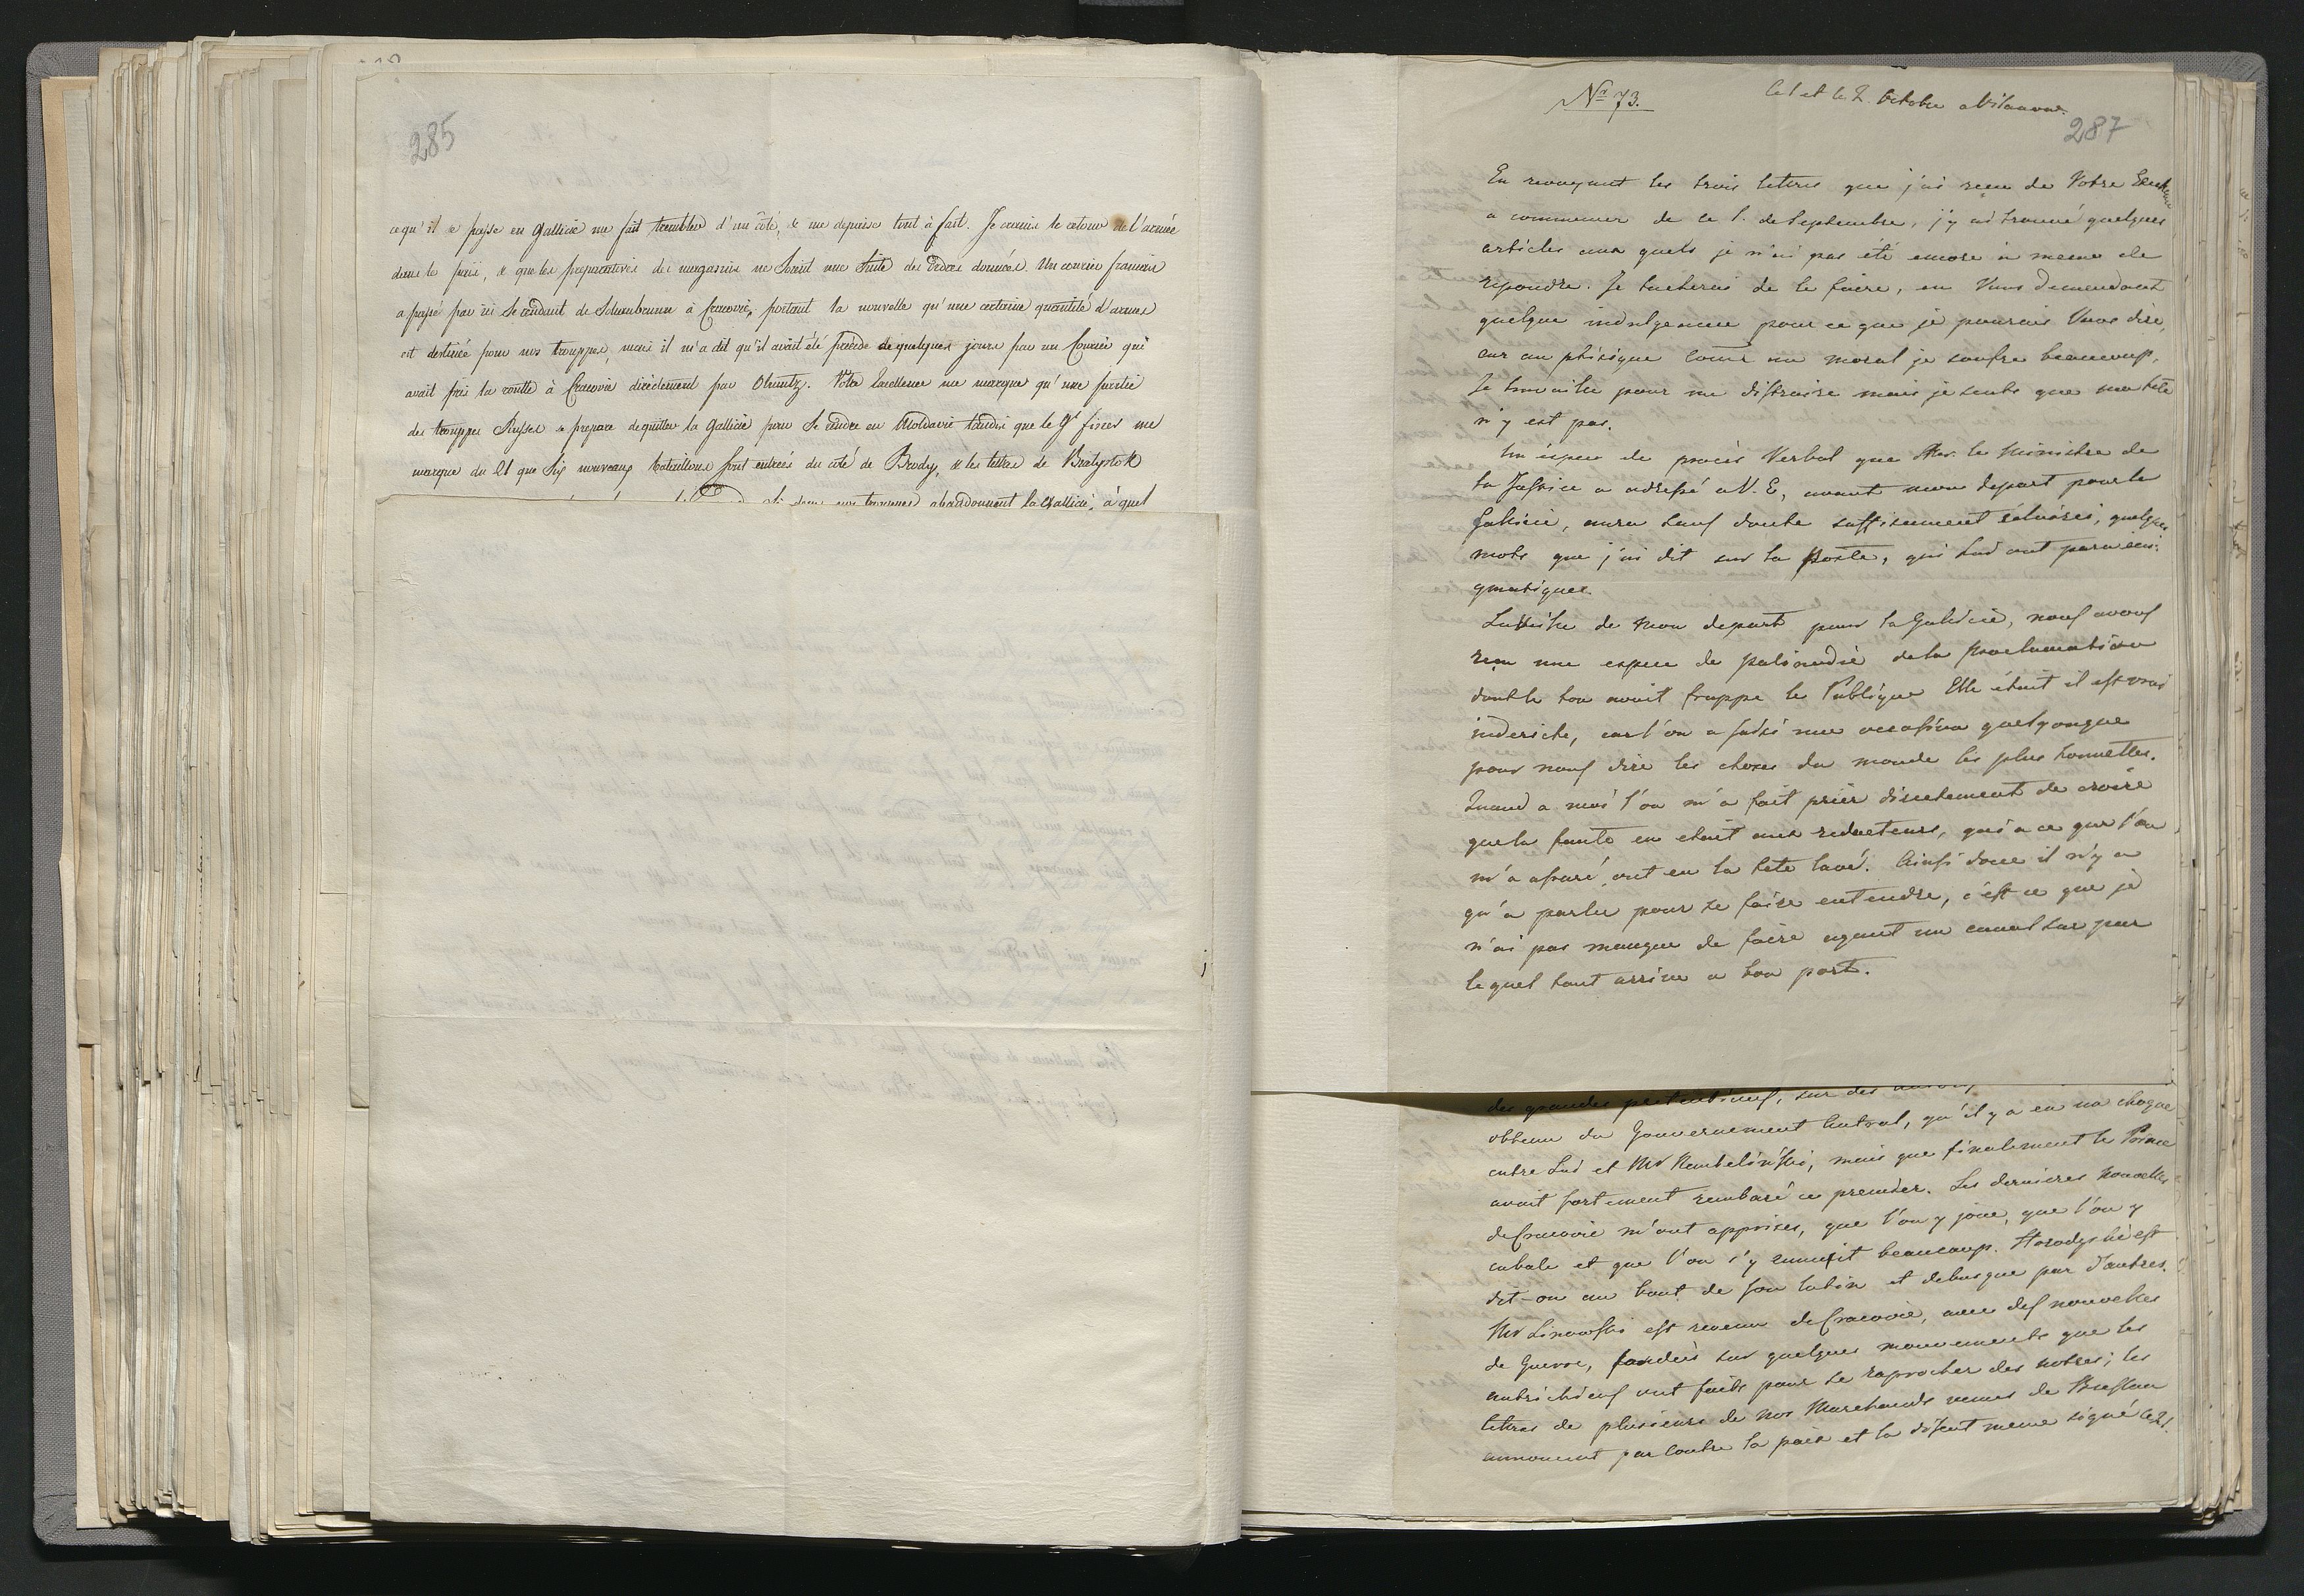 285
ce qu'il se passe en Gallicie me fait trembler d'un côté, & me depaise tout à fait. Je crains le retour de l'armée
dans le païs, & que les preparatives des magasins ne soient une suite des ordres donnés. Un courier français
a passé par ici se rendant de Schoenbrunn à Cracovie, portant la nouvelle qu'une certaine quantité d'armes
est destinée pour nos trouppes, mais il m'a dit qu'il avait été précédé de quelques jours par un Courier qui
avait pris la routte à Cracovie directement par Olmutz. Votre Excellence me marque qu'une partie
des trouppes Russes se prepare de quitter la Gallicie pour se rendre en Moldavie tandis que le Gl fiszer me
marque du 21 que six nouveaux bataillons sont entrés du côté de Brody, & les lettres de Bialystok
si donc nos trouppes abandonnent la Gallicie, à quel
Nr 73.
Ce 1 et le 2. Octobre a Vilanow.
287
En revoyant les trois lettres que j'ai reçue de Votre Excellence
a commencer de ce 1. de Septembre, j'y ai trouvé quelques
articles aux quels je n'ai pas été encore à meme de
repondre. Je tacherai de le faire, en Vous demendant
quelque indulgence pour ce que je pourais Vous dire,
car au phisique come au moral je soufre beaucoup.
Je travaille pour me distraire mais je sents que ma tete
n'y est pas.
Un espece de procès Verbal que Mr. le Ministre de
la Justice a adressé a V. E, avant mon depart pour la
Galicie, aura sans doute suffisament éclairci, quelques
mots que j'ai dit sur la poste, qui Lui ont paru eni-
gmatiques.
La veille de mon depart pour la Galicie, nous avons
reçu une espece de palinodie de la proclamation
dont le ton avait frappé le Publique Elle était il est vrai
indirecte, car l'on a saisi une occasion quelquonque
pour nous dire les choses du monde les plus honnettes.
Quand a moi l'on m'a fait prier discretement de croire
que la faute en etait aux redacteurs, qui a ce que l'on
m'a assuré, ont eu la tete lavé. Ainsi donc il n'y a
qu'a parler pour se faire entendre, c'est ce que je
n'ai pas manqué de faire ayant un canal sur par
lequel tout arrive a bon port.
des grandes pretentions, sur des
obtenu du Gouvernement Central, qu'il y a eu un choque
entre Lui et Mr Rembelinski, mais que finalement le Prince
avait fortement rembaré ce premier. Les dernieres nouvelles
de Cracovie m'ont apprises, que l'on y joue, que l'on y
cabale et que l'on s'y beaucoup. Horodyski est
dit-on au bout de son latin et debusqué par d'autres.
Mr Linowski est revenu de Cracovie, avec des nouvelles
de Guerre, fondées sur quelques mouvements que les
autrichiens ont faits pour se raprocher des notres; les
lettres de plusieurs de nos Marchands venus de Breslau
annoncent par contre la paix et la disent meme signé